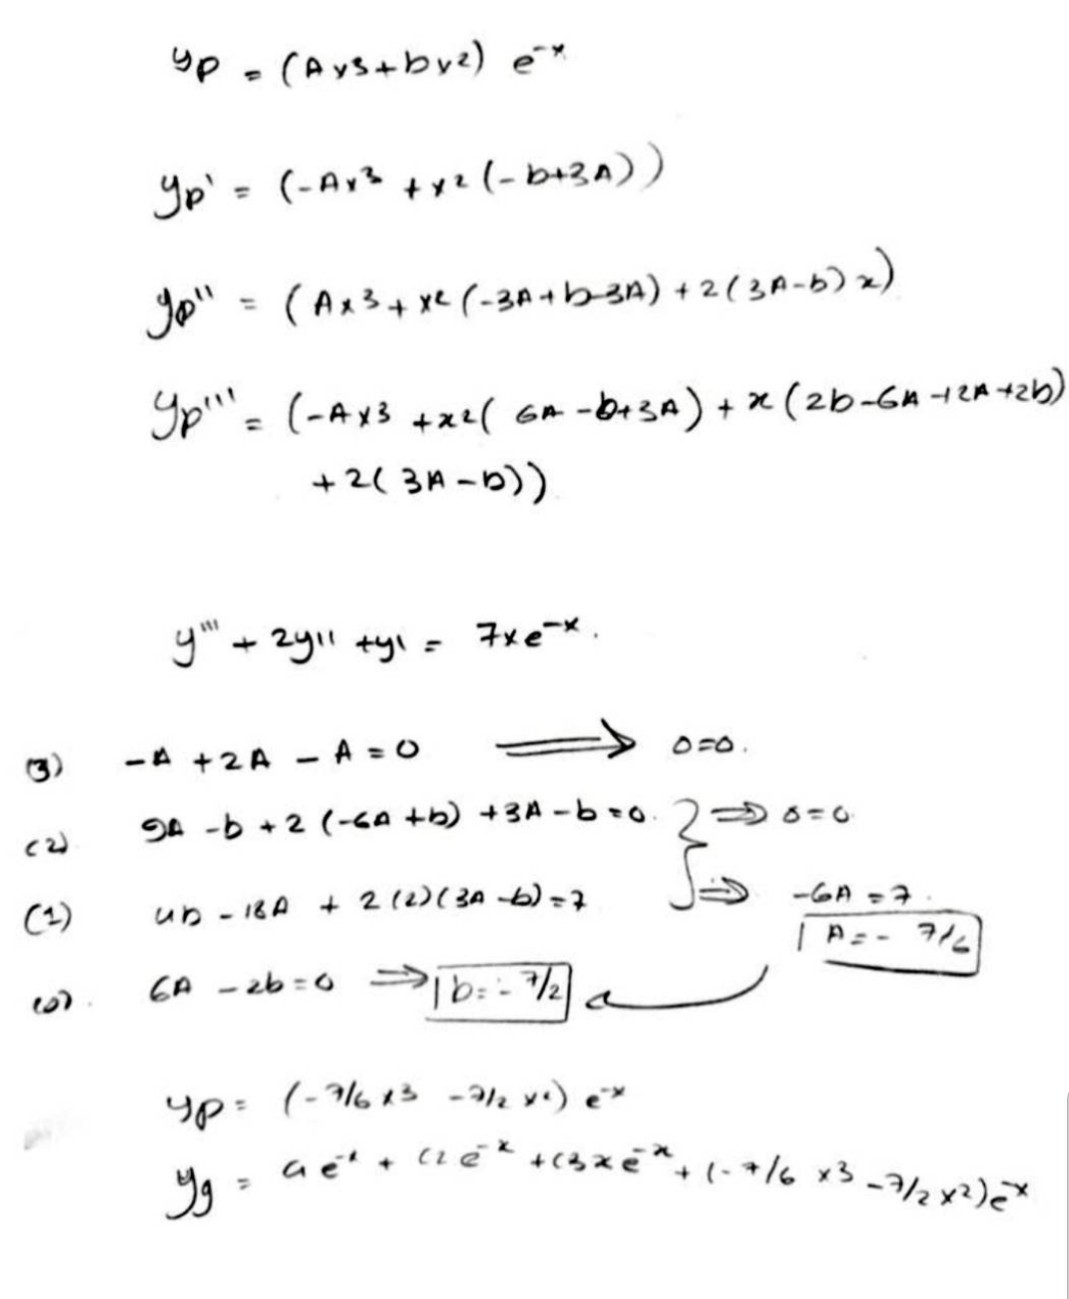 yp = (Ax3+bx2) e^-x
yp' = (-Ax^3 + x^2 (-b+3A))
yp'' = (Ax3 + x2 (-3A+b-3A) + 2(3A-b)x)
yp''' = (-Ax3 + x2( 6A -b+3A) + x (2b-6A-12A+2b)
+ 2( 3A-b))
y''' + 2y'' + y' = 7xe^-x.
(3) -A + 2A - A = 0 ⟹ 0=0.
(2) 9A -b + 2 (-6A +b) + 3A - b = 0. } ⇒ 0=0
(1) 4b - 18A + 2(2)(3A -b) = 7 ⇒ -6A = 7.
A = - 7/6
(0). 6A - 2b = 0 ⇒ b = - 7/2
yp = (-7/6 x3 - 7/2 x2) e^-x
yg = c1 e^-x + c2 e^-x + c3 x e^-x + (-7/6 x3 - 7/2 x2) e^-x